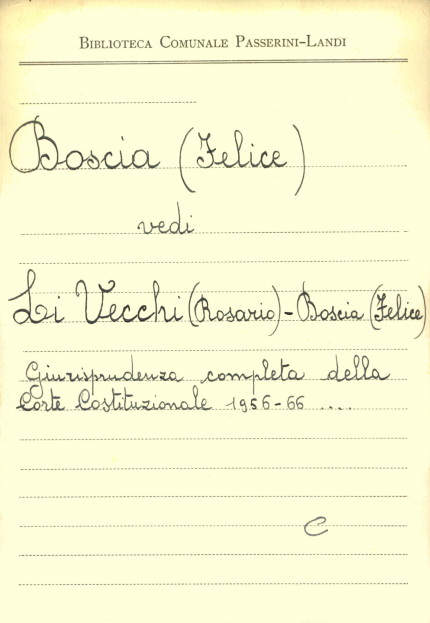 BIBLIOTECA COMUNALE PASSERINI-LANDI
Boscia (Felice)
vedi
Li Vecchi (Rosario) - Boscia (Felice)
Giurisprudenza completa della
Corte Costituzionale 1956-66 ....
C